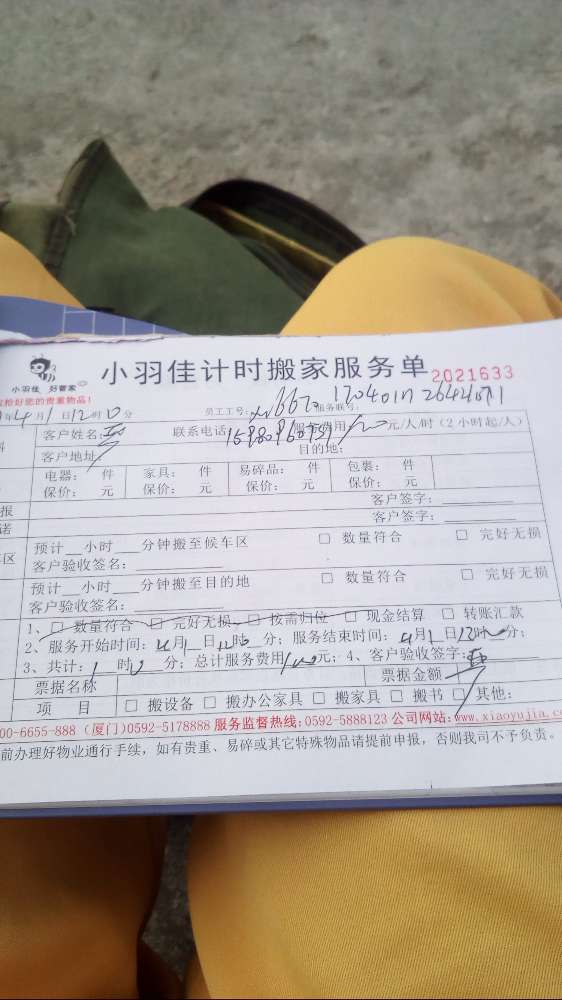 小羽佳计时搬家服务单 2021633
小羽佳 好管家
您的贵重物品！
年4月1日12时0分 员工工号: 服务联号:
客户姓名: 联系电话: 服务费用 元/人/时（2小时起/人）
客户地址: 目的地:
电器: 件 家具: 件 易碎品: 件 包裹: 件
保价: 元 保价: 元 保价: 元 保价: 元
报 客户签字:
诺 客户签字:
预计__小时__分钟搬至候车区 □ 数量符合 □ 完好无损
区 客户验收签名:
预计__小时__分钟搬至目的地 □ 数量符合 □ 完好无损
客户验收签名:
1、□ 数量符合 □ 完好无损 □ 按需归位 □ 现金结算 □ 转账汇款
2、服务开始时间: 4月1日12时 分；服务结束时间: 4月1日13时 分；
3、共计: 1时0分；总计服务费用 元；4、客户验收签字:
票据名称 票据金额
项 目 □ 搬设备 □ 搬办公家具 □ 搬家具 □ 搬书 □ 其他:
00-6655-888（厦门)0592-5178888 服务监督热线:0592-5888123 公司网站:www.xiaoyujia.c
前办理好物业通行手续，如有贵重、易碎或其它特殊物品请提前申报，否则我司不予负责。